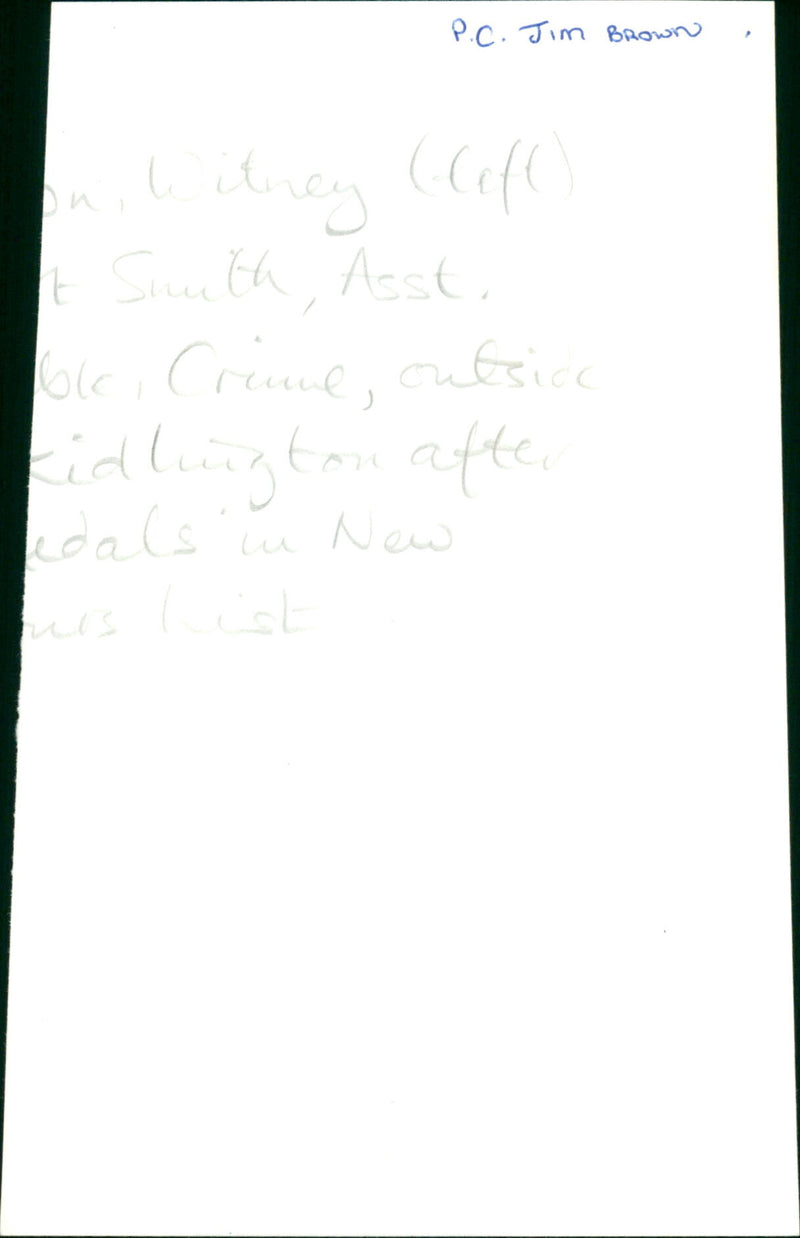 P.C. JIM BROWN .
on, Witney (left)
t Smith, Asst.
ble, Crime, outside
Kidlington after
edals in New
ours List